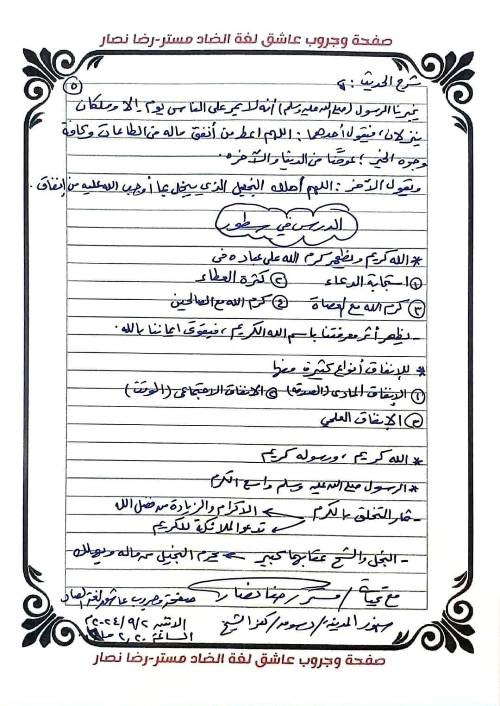 صفحة وجروب عاشق لغة الضاد مستر-رضا نصار
٥
شرح الحديث :-
يخبرنا الرسول (صلى الله عليه وسلم) أنه لا يمر على الناس يوم إلا وملكان
ينزلان، فيقول أحدهما: اللهم أعط من أنفق ماله من الطاعات وكافة
وجوه الخير؛ عوضًا من الدنيا والآخرة.
ويقول الآخر: اللهم أهلك البخيل الذي يبخل بما أوجب الله عليه من إنفاق.
الدرس في سطور
* الله كريم ويظهر كرم الله على عباده فى
① استجابة الدعاء ② كثرة العطاء
③ كرم الله مع العصاة ④ كرم الله مع الصالحين
- يظهر أثر معرفتنا باسم الله الكريم، فيقوى إيماننا بالله.
* للإنفاق أنواع كثيرة منها
① الإنفاق المادى (الصدقة) ② الانفاق الاجتماعى (الوقت)
③ الإنفاق العلمي
* الله كريم، ورسوله كريم
* الرسول صلى الله عليه وسلم واسع الكرم
- ثمار التخلق بالكرم ← الاكرام والزيادة من فضل الله
← تدعو الملائكة للكريم
- البخل والشح عقابهما كبير ← يحرم البخيل من ماله ويهلك
مع تحياتى / مستر / رضا نصار صفحة وجروب عاشق لغة الضاد
الاثنين ٢٠٢٤/٩/٢م
صفحة وجروب عاشق لغة الضاد مستر-رضا نصار